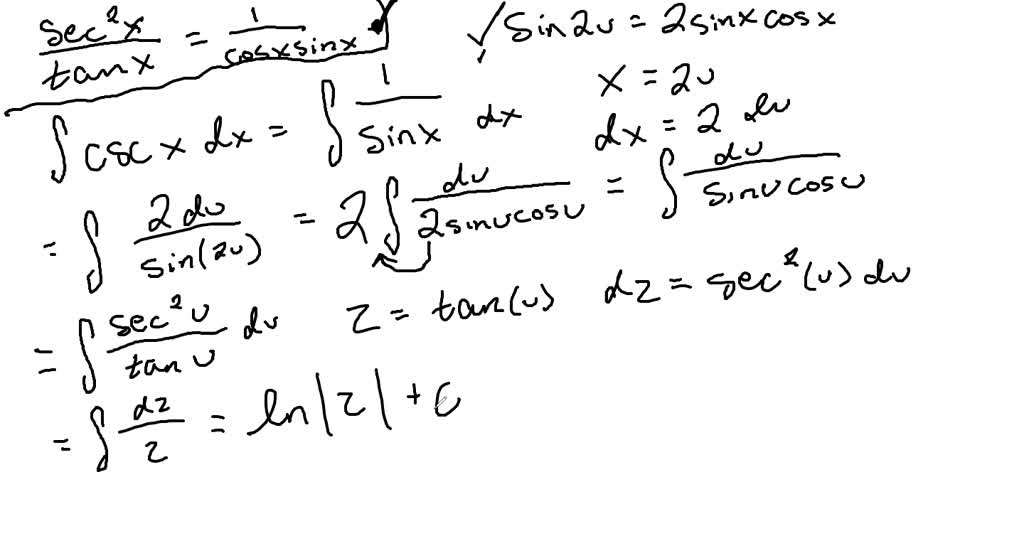 sec²x / tan x = 1 / cos x sin x
✓ Sin 2u = 2 sin x cos x
x = 2u
dx = 2 du
∫ csc x dx = ∫ 1 / sin x dx
= ∫ 2 du / sin(2u) = 2 ∫ du / 2 sin u cos u = ∫ du / sin u cos u
= ∫ sec² u / tan u du z = tan(u) dz = sec²(u) du
= ∫ dz / z = ln|z| + c